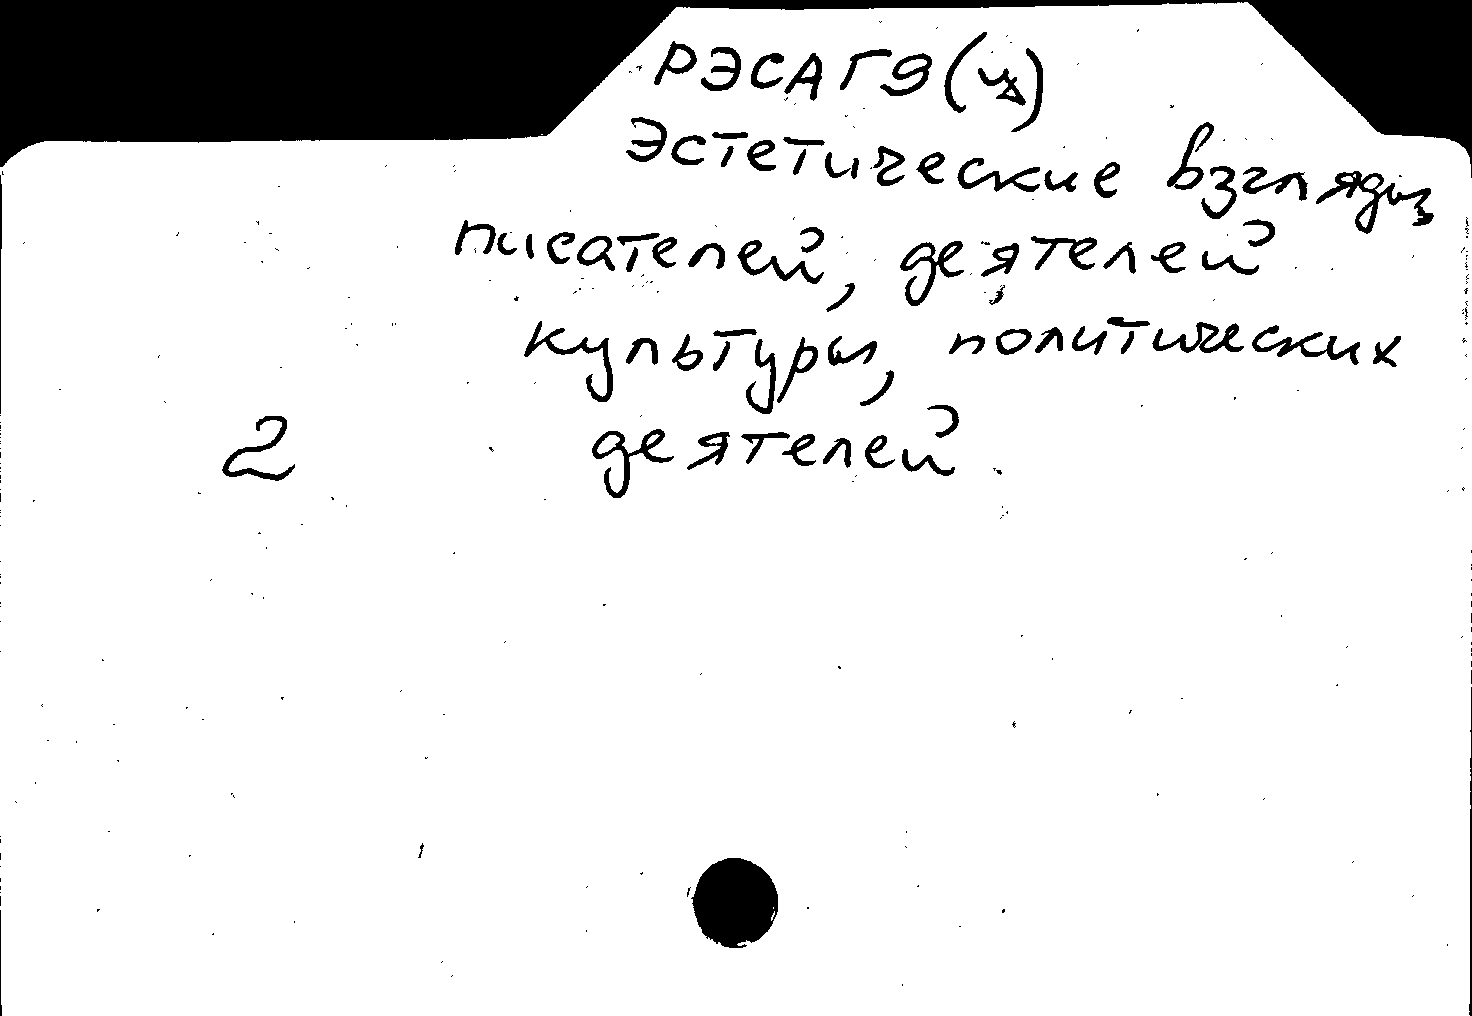 РЭСАГ9
Эстетические взгляды
писателей, деятелей
культуры, политических
2 деятелей